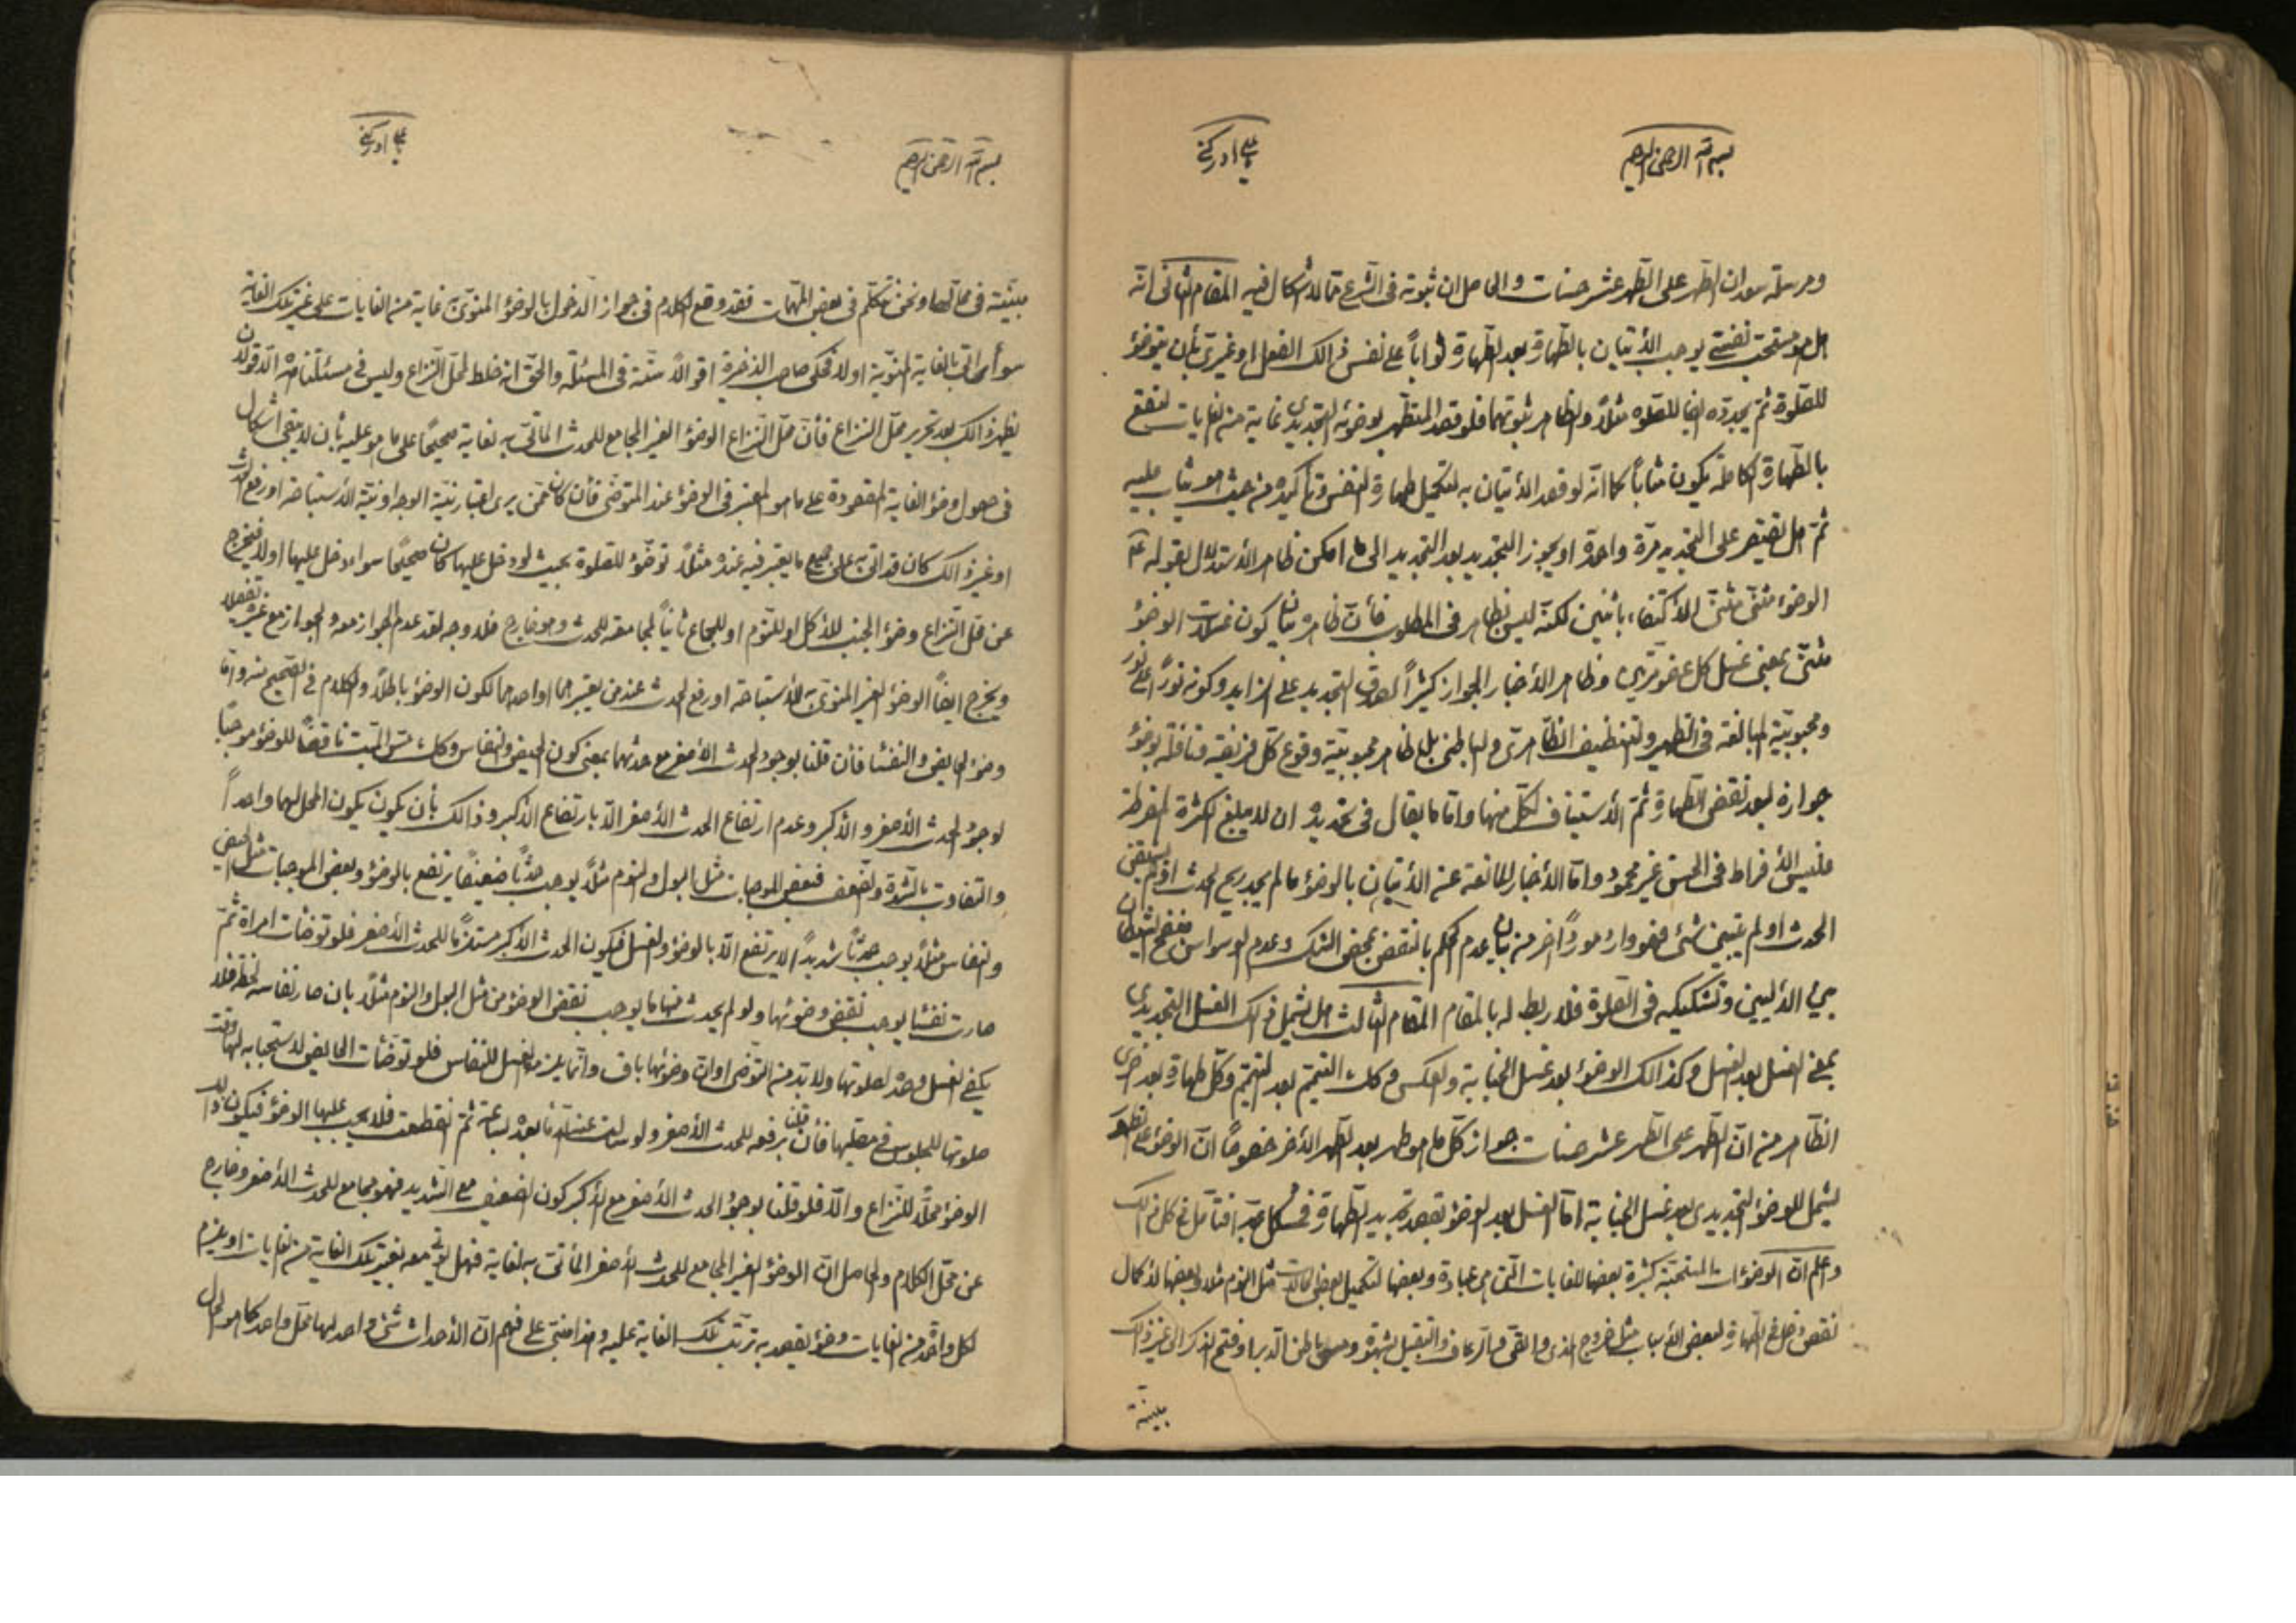 بسم الله الرحمن الرحيم
يا علي ادركني
ومرسلة سعدان الطهر على الطهر عشر حسنات والحاصل ان ثبوته في الشرع مما لا اشكال فيه المقام الثاني انه
هل هو مستحب نفسي يوجب الأتيان بالطهارة بعد الطهارة ثواباً على نفس ذالك الفعل او غيري بأن يتوضؤ
للصلوة ثم يجدده ايضا للصلوة مثلاً والظاهر ثبوتهما فلو قصد المتطهر بوضوئه التجديدي غاية من الغايات لتقع
بالطهارة الكاملة يكون مثاباً كما انه لو قصد الأتيان به لتكميل طهارة النفس وتأكيده من حيث هو يثاب عليه
ثم هل يقتصر على التجديد مرة واحدة او يجوز التجديد بعد التجديد الى ما امكن ظاهر الأستدلال بقوله ع
الوضوء مثنى مثنى الأكتفاء باثنين لكنه ليس بظاهر في المطلوب فأن ظاهره بيان كون غسلات الوضوء
مثنى بمعنى غسل كل عضو مرتين وظاهر الأخبار الجواز كثيراً لصدق التجديد على الزايد وكونه نوراً على نور
ومحبوبية المبالغة في التطهير والتنظيف الظاهري والباطني بل ظاهر محبوبية وقوع كل فريضة ونافلة بوضوء
جوازه بعد نقض الطهارة ثم الأستيناف لكل منها واما ما يقال في تحديده ان لا يبلغ الكثرة المفرطة
فليس الأفراط في الحسن غير محمود واما الأخبار المانعة عن الأتيان بالوضوء ما لم يجد ريح الحدث او لم يستيقن
الحدث او لم يتبين شئ فهو وارد مورداً اخر من بيان عدم الحكم بالنقض بمحض الشك وعدم الوسواس فنفخ الشيطان
بين الأليين وتشكيكه في الصلوة فلا ربط له بالمقام المقام الثالث هل يشمل ذالك الغسل التجديدي
بمعنى الغسل بعد الغسل وكذالك الوضوء بعد غسل الجنابة والعكس وكك التيمم بعد التيمم وكل طهارة بعد اخرى
الظاهر من ان الطهر على الطهر عشر حسنات جواز كل ما هو طهر بعد الطهر الأخر خصوصاً ان الوضوء على الطهر
يشمل للوضوء التجديدي بعد غسل الجنابة اما الغسل بعد الوضوء بقصد تجديد الطهارة فمشكل جداً فتأمل في كل ذالك
واعلم ان الوضوءات المستحبة كثيرة بعضها للغايات التي هي عبادة وبعضها لتكميل بعض الحالات مثل النوم مثلا وبعضها لأكمال
نقص دخل في الطهارة لبعض الأسباب مثل خروج المذي والقئ والرعاف والتقبيل بشهوة ومس باطن الدبر او فتح الذكر الى غير ذالك
مبينة
بسم الله الرحمن الرحيم
يا علي ادركني
مبينة في محالها ونحن نتكلم في بعض المهمات فقد وقع الكلام في جواز الدخول بالوضوء المنوي به غاية من الغايات على غير تلك الغاية
سواء اتى بالغاية المنوية اولا فحكى صاحب الذخيرة اقوالاً ستة في المسئلة والحق انه خلط لمحل النزاع وليس في مسئلتنا هذه الا قولان
يظهر ذالك بعد تحرير محل النزاع فأن محل النزاع الوضوء الغير المجامع للحدث المأتي به لغاية صحيحاً على ما هو عليه بأن لا يبقى اشكال
في حصول وضوء الغاية المقصودة على ما هو المعتبر في الوضوء عند المتوضى فأن كان ممن يرى اعتبار نية الوجه او نية الأستباحة او رفع الحدث
او غير ذالك كان قد اتى به على جميع ما يعتبر فيه عنده مثلاً توضؤ للصلوة بحيث لو دخل عليها كان صحيحاً سواء دخل عليها اولا فيخرج
عن محل النزاع وضوء الجنب للأكل او للنوم او للجماع ثانياً لمجامعته للحدث وهو خارج فلا وجه لعد عدم الجواز معه والجواز مع غيره تفصيلا
ويخرج ايضاً الوضوء الغير المنوي به الأستباحة او رفع الحدث عند من يعتبرهما او احدهما لكون الوضوء باطلاً والكلام في الصحيح منه واما
وضوء الحايض والنفساء فأن قلنا بوجود الحدث الأصغر مع حدثهما بمعنى كون الحيض والنفاس وكك مس الميت ناقضاً للوضوء موجباً
لوجود الحدث الأصغر والأكبر وعدم ارتفاع الحدث الأصغر الا بارتفاع الأكبر وذالك بأن يكون يكون المحل لهما واحداً
والتفاوت بالشدة والضعف فبعض الموجبات مثل البول والنوم مثلاً يوجب حدثاً ضعيفاً يرتفع بالوضوء وبعض الموجبات مثل الحيض
والنفاس مثلاً يوجب حدثاً شديداً لا يرتفع الا بالوضوء والغسل فيكون الحدث الأكبر مستلزماً للحدث الأصغر فلو توضأت امراة ثم
صارت نفساء يوجب نقض وضوئها ولو لم يحدث منها ما يوجب نقض الوضوء من مثل البول والنوم مثلاً بان صار نفاسه لحظة فلا
يكفي الغسل وحده لصلوتها ولا بد من التوضى او ان وضوئها باق وانما يلزم الغسل للنفاس فلو توضأت الحايض لاستحبابه لها وقت
صلوتها للجلوس في مصليها فأن قلنا برفعه للحدث الأصغر ثم انقطعت فلا يجب عليها الوضوء فيكون
الوضوء محلاً للنزاع والا فلو قلنا بوجود الحدث الأصغر مع الأكبر كون الضعيف مع الشديد فهو مجامع للحدث الأصغر وخارج
عن محل الكلام والحاصل ان الوضوء الغير المجامع للحدث الأصغر المأتي به لغاية فهل يؤتى معه بغير تلك الغاية من الغايات او يلزم
لكل واحد من الغايات وضوء يقصد به ترتب تلك الغاية عليه وهذا مبني على فهم ان الأحداث شئ واحد لها محل واحد كما هو الحال